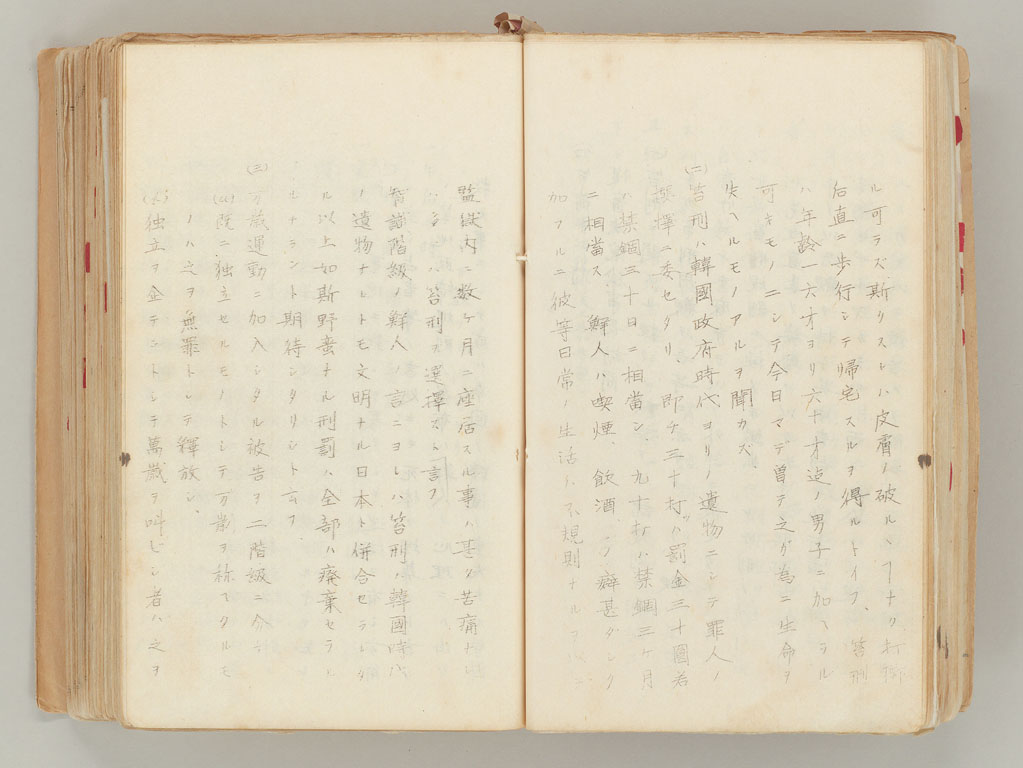 ル可ラズ斯リストハ皮膚ノ破ルヽ ナク打擲
后直ニ歩行シテ帰宅スルヲ得ルトイフ、笞刑
ハ年齢一六才ヨリ六十才迄ノ男子ニ加ヘラル
可キモノニシテ今日マデ曽テ之ガ為ニ生命ヲ
失ヘルモノアルヲ聞カズ
(二)笞刑ハ韓國政府時代ヨリノ遺物ニシテ罪人ノ
撰擇ニ委セタリ 即チ三十打ハ罰金三十圓若
ハ禁錮三十日ニ相當シ、九十打ハ禁錮三ヶ月
ニ相當ス 鮮人ハ喫煙 飲酒ノ癖甚ダシク
加フルニ彼等日常ノ生活ハ不規則ナル
監獄内ニ数ヶ月ニ座居スル事ハ甚ダ苦痛
笞刑ヲ選擇スト言フ
智識階級ノ鮮人ノ言ニヨレハ笞刑ハ韓國時代
ノ遺物ナレトモ文明ナル日本ト併合セラレタ
ル以上如斯野蛮ナル刑罰ハ全部ハ癈棄セラレ
ルモナラント期待シタリシト云フ
(三)万歳運動ニ加入シタル被告ヲ二階級ニ分テ
(a)既ニ独立セルモノトシテ万歳ヲ称ヘタルモ
ノハ之ヲ無罪トシテ釋放シ、
(b)独立ヲ企テントシテ萬歳ヲ叫ビシ者ハ之ヲ